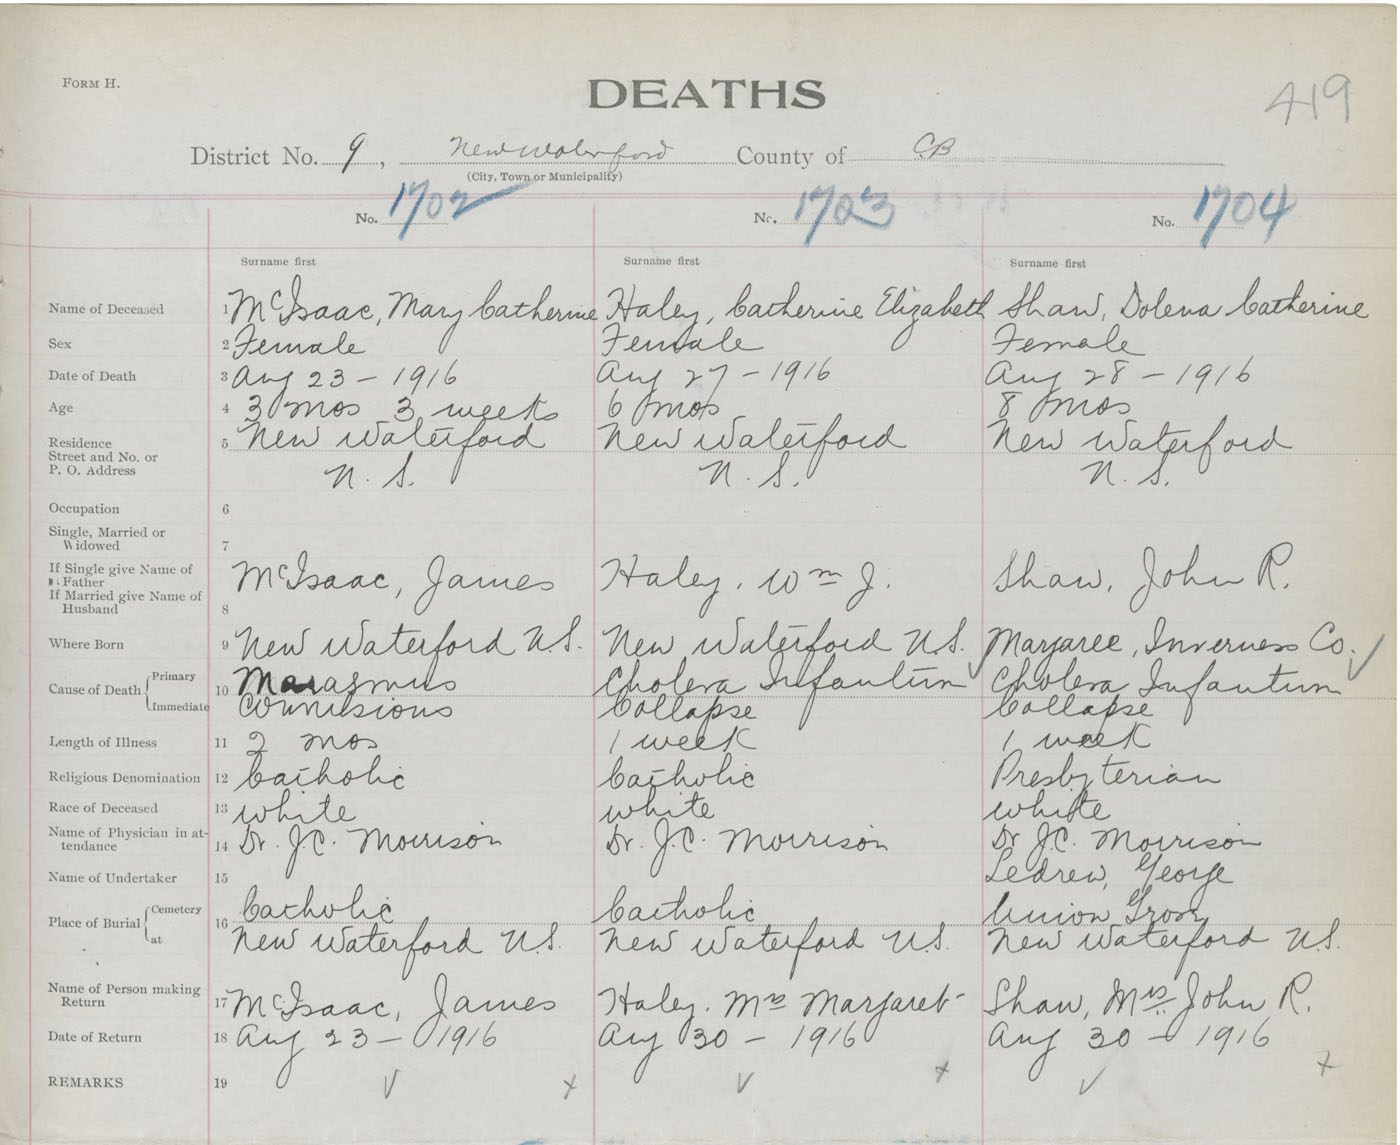 FORM H.
DEATHS
419
District No. 9, New Waterford County of CB
(City, Town or Municipality)
No. 1702 No. 1703 No. 1704
Surname first Surname first Surname first
Name of Deceased 1 McIsaac, Mary Catherine Haley, Catherine Elizabeth Shaw, Dolena Catherine
Sex 2 Female Female Female
Date of Death 3 Aug 23 - 1916 Aug 27 - 1916 Aug 28 - 1916
Age 4 3 mos 3 weeks 6 mos 8 mos
Residence
Street and No. or
P. O. Address
5 New Waterford New Waterford New Waterford
N. S. N. S. N. S.
Occupation 6
Single, Married or
Widowed 7
If Single give Name of
Father
If Married give Name of
Husband 8
McIsaac, James Haley, Wm J. Shaw, John R.
Where Born 9 New Waterford N.S. New Waterford N.S. Margaree, Inverness Co.
Cause of Death Primary 10 Marasmus Cholera Infantum Cholera Infantum
Immediate Convulsions Collapse Collapse
Length of Illness 11 2 mos 1 week 1 week
Religious Denomination 12 Catholic Catholic Presbyterian
Race of Deceased 13 white white white
Name of Physician in at-
tendance 14 Dr. J.C. Morrison Dr. J.C. Morrison Dr J.C. Morrison
Name of Undertaker 15 Ledrew, George
Place of Burial Cemetery 16 Catholic Catholic Union
at New Waterford N.S. New Waterford N.S. New Waterford N.S.
Name of Person making
Return 17 McIsaac, James Haley. Mrs Margaret Shaw, Mrs. John R.
Date of Return 18 Aug 23 - 1916 Aug 30 - 1916 Aug 30 - 1916
REMARKS 19